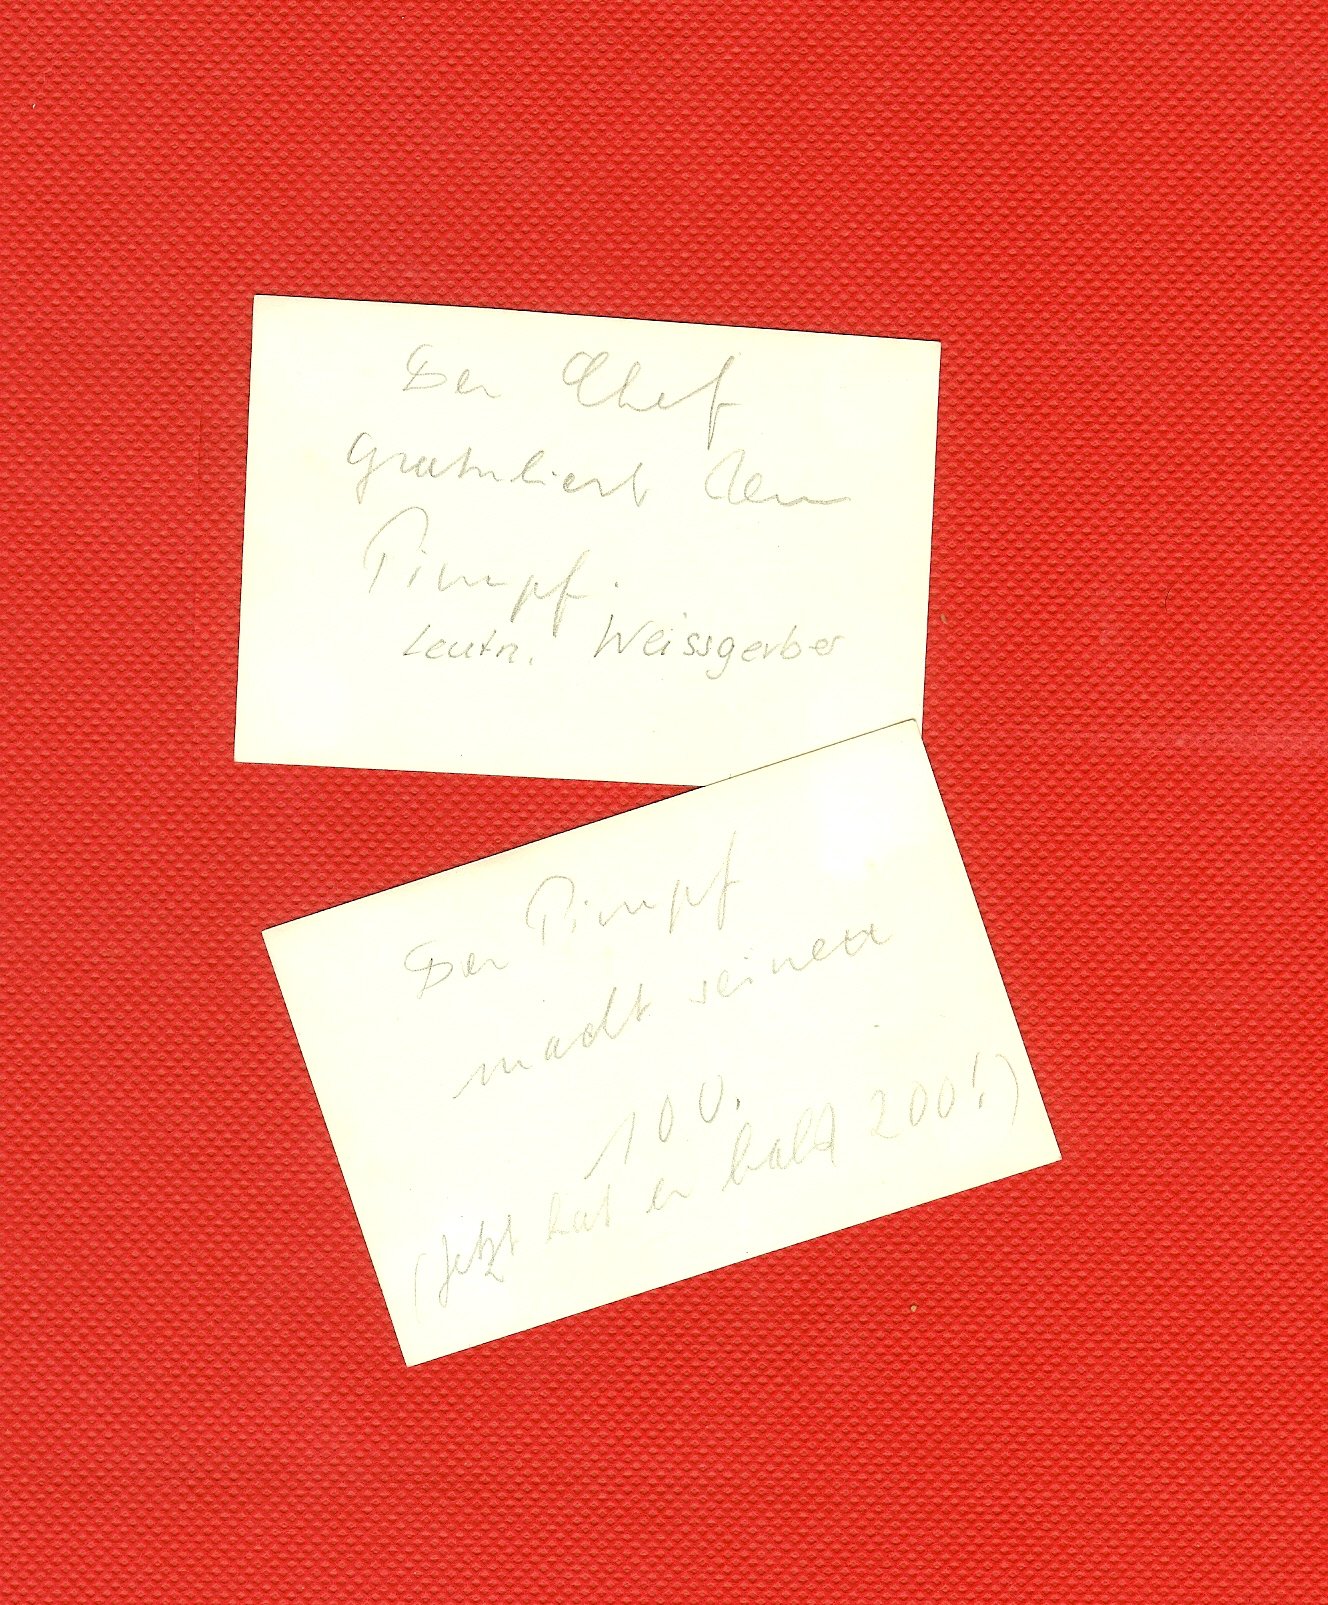 Der Chef
gratuliert dem
Pimpf.
Leutn. Weissgerber
Der Pimpf
macht seinen
100.
(Jetzt hat er bald 200!)